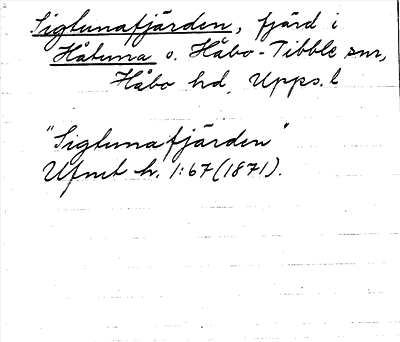 Sigtunafjärden, fjärd i
Håtuna o. Håbo-Tibble snr,
Håbo hd, Upps. l
"Sigtunafjärden"
Ufmt h. 1:67 (1871).